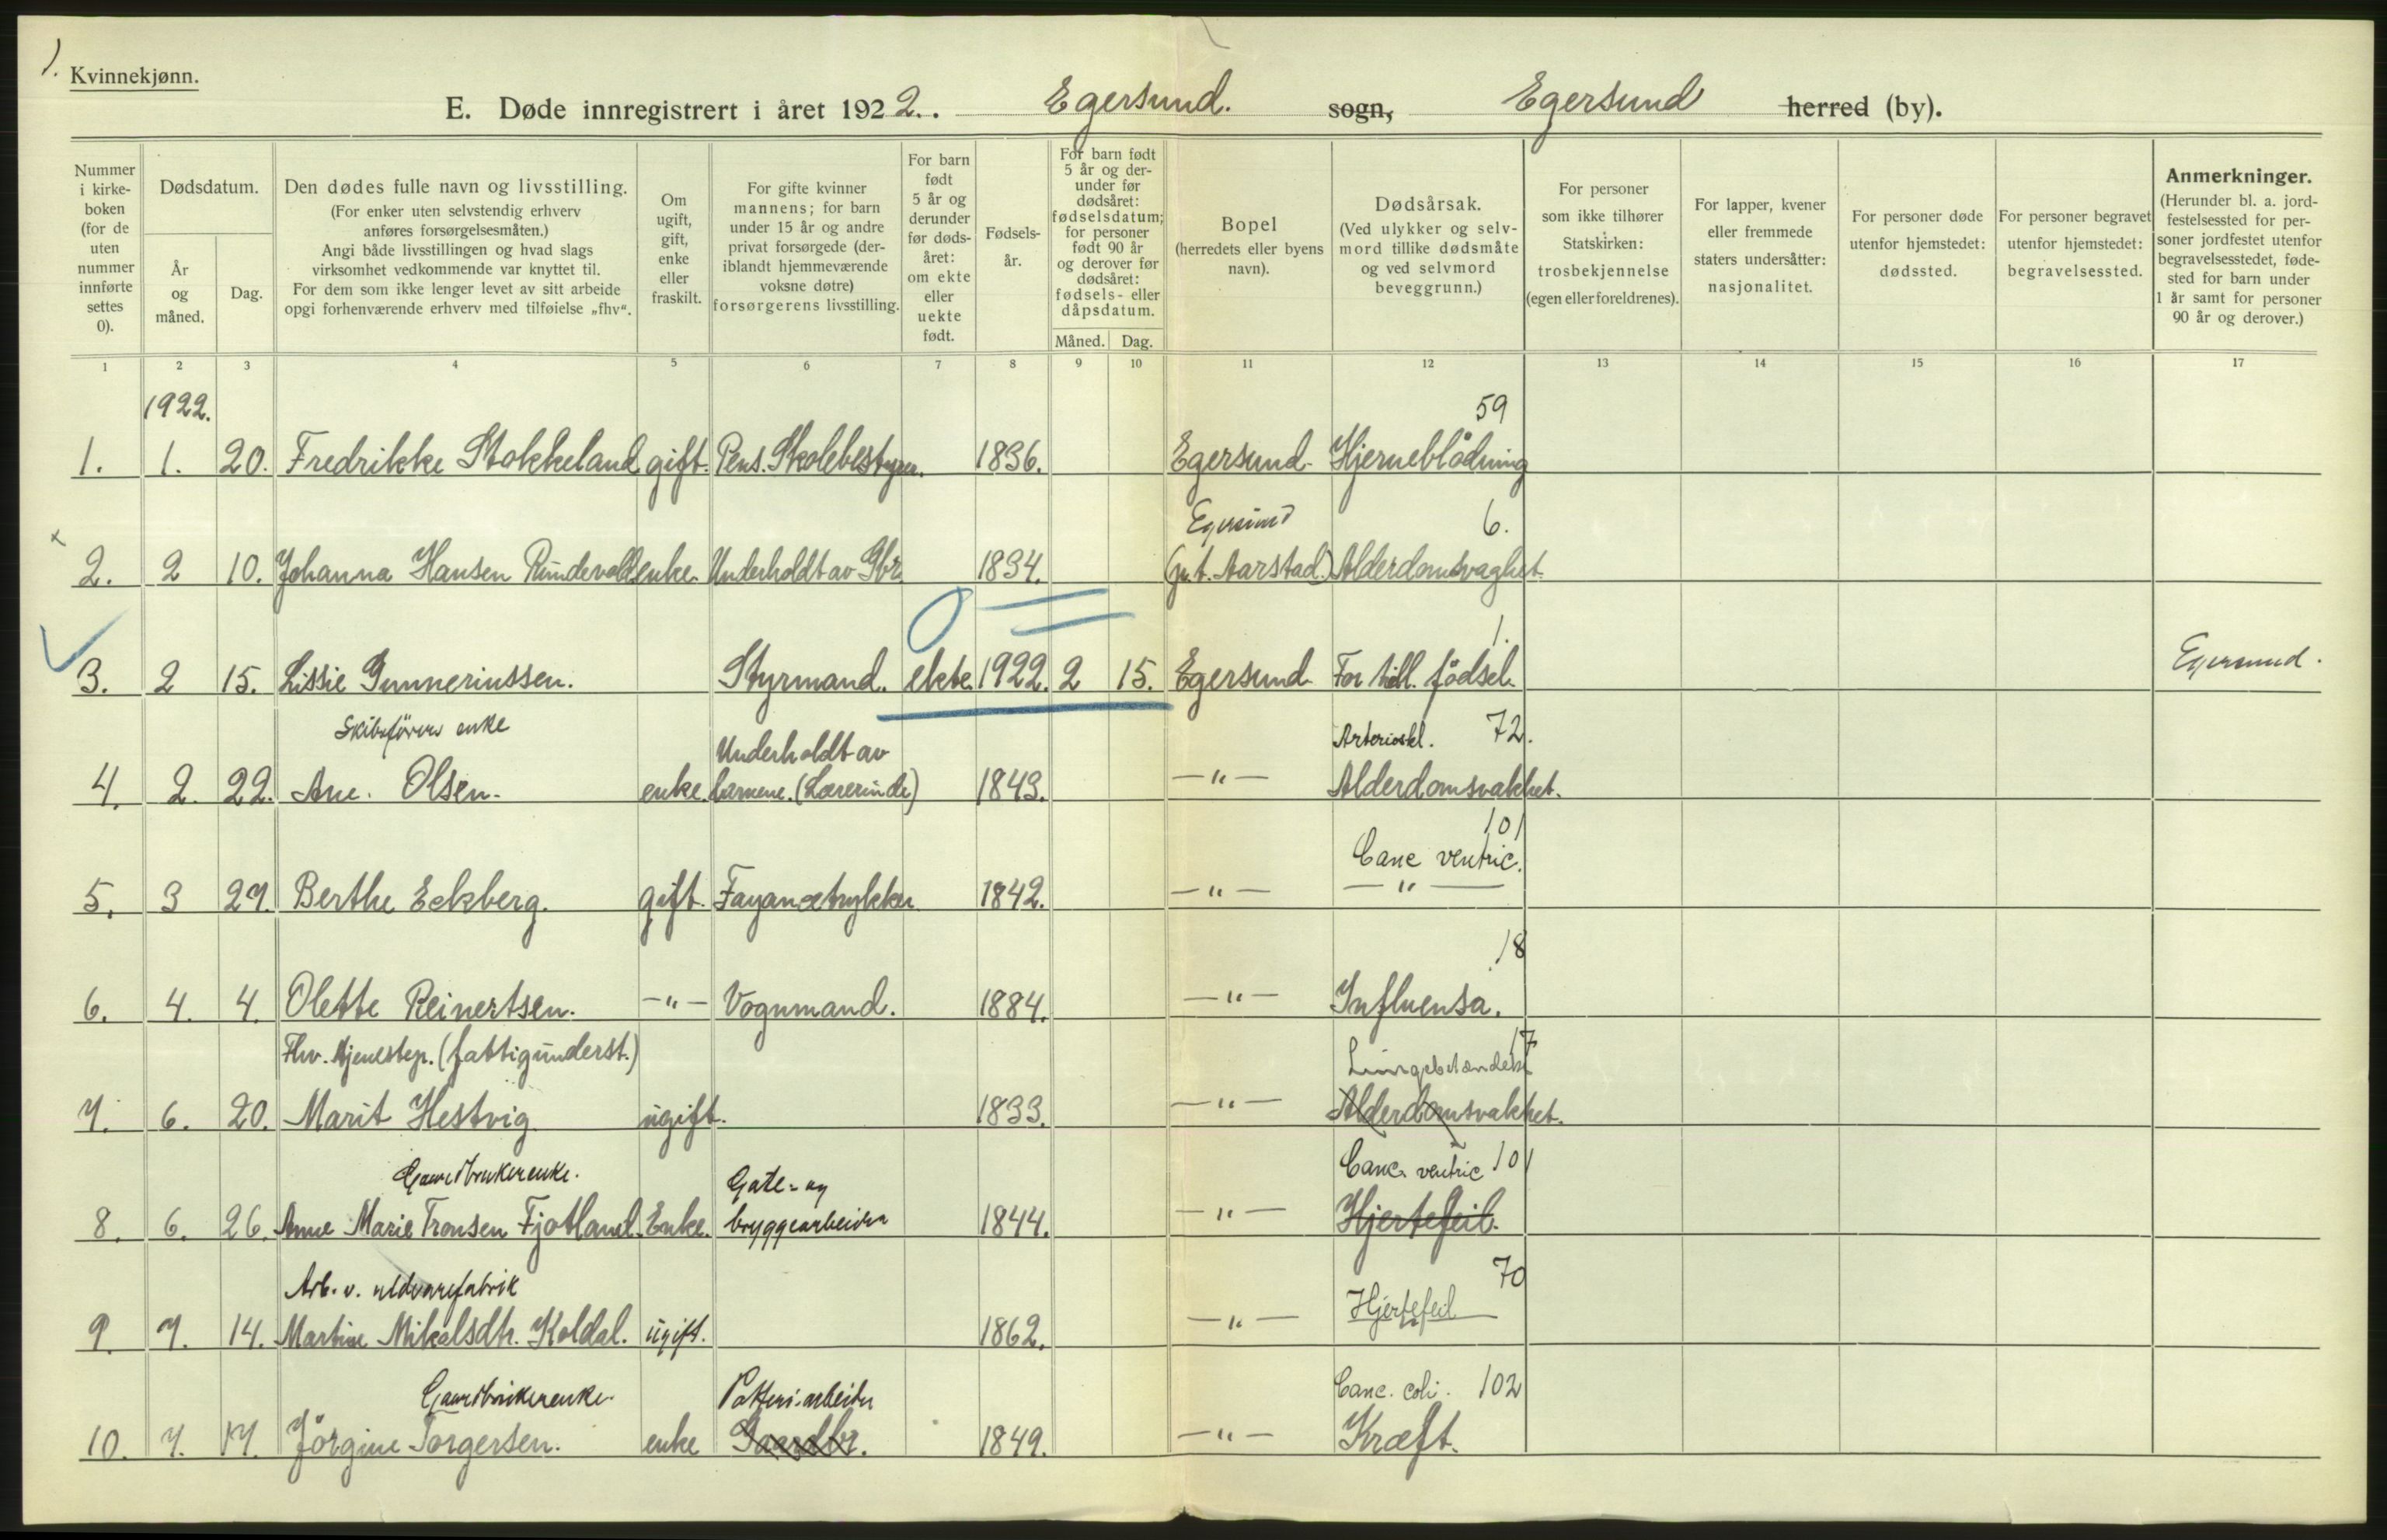 1.
Kvinnekjønn.
E. Døde innregistrert i året 1922. Egersund. sogn, Egersund herred (by).
Nummer i kirke- boken (for de uten nummer innførte settes 0).
Dødsdatum.
År og måned.
Dag.
Den dødes fulle navn og livsstilling.
(For enker uten selvstendig erhverv
anføres forsørgelsesmåten.)
Angi både livsstillingen og hvad slags
virksomhet vedkommende var knyttet til.
For dem som ikke lenger levet av sitt arbeide
opgi forhenværende erhverv med tilføielse „fhv“.
Om ugift, gift, enke eller fraskilt.
For gifte kvinner
mannens; for barn
under 15 år og andre
privat forsørgede (der-
iblandt hjemmeværende
voksne døtre)
forsørgerens livsstilling.
For barn født 5 år og derunder før døds- året: om ekte eller uekte født.
Fødsels- år.
For barn født 5 år og der- under før dødsåret: fødselsdatum; for personer født 90 år og derover før dødsåret: fødsels- eller dåpsdatum.
Måned. Dag.
Bopel
(herredets eller byens
navn).
Dødsårsak.
(Ved ulykker og selv-
mord tillike dødsmåte
og ved selvmord
beveggrunn.)
For personer
som ikke tilhører
Statskirken:
trosbekjennelse
(egen eller foreldrenes).
For lapper, kvener
eller fremmede
staters undersåtter:
nasjonalitet.
For personer døde
utenfor hjemstedet:
dødssted.
For personer begravet
utenfor hjemstedet:
begravelsessted.
Anmerkninger.
(Herunder bl. a. jord-
festelsessted for per-
soner jordfestet utenfor
begravelsesstedet, føde-
sted for barn under
1 år samt for personer
90 år og derover.)
1 2 3 4 5 6 7 8 9 10 11 12 13 14 15 16 17
1922. 59
1. 1. 20. Fredrikke Stokkeland gift. Pens. Skolebestyrer. 1836. Egersund. Hjerneblødning
Egersund 6.
2. 2 10. Johanna Hansen Rundevold enke. Underholdt av Gbr. 1834. (p.t. Aarstad.) Alderdomsvaghet.
1.
3. 2 15. Lissie Gunneriussen. Styrmand. ekte 1922. 2 15. Egersund. For tidl. fødsel. Egersund.
Skibsførers enke Underholdt av Arterioskl. 72.
4. 2. 22. Ane. Olsen. enke. barnene. (Lærerinde) 1843. —"— Alderdomsvakhet.
101
Canc ventric.
5. 3 27. Berthe Eekberg. gift. Fayancetrykker 1842. —"— —"—
18
6. 4. 4. Olette Reinertsen. —"— Vognmand. 1884. —"— Influensa.
Fhv. tjenestep. (fattigunderst.) Lungebetændelse 17
7. 6. 20. Marit Hestvig ugift. 1833. —"— Alderdomsvakhet.
Gaardbrukerenke. Gate- og Canc. ventric 101
8. 6. 26. Anne Marie Tronsen Fjotland. Enke. bryggearbeider 1844. —"— Hjertefeil.
Arb. v. uldvarefabrik 70
9. 7. 14. Martine Mikalsdtr. Koldal. ugift. 1862. —"— Hjertefeil
Gaardbrukerenke. Potteriarbeider Canc. coli. 102
10. 7. 17. Jørgine Torgersen. enke Gaardbr. 1849. —"— Kræft.